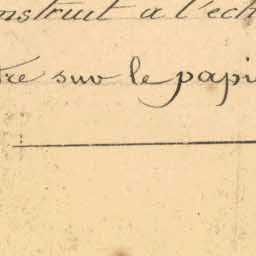 nstruit à l'éch
tre sur le papi